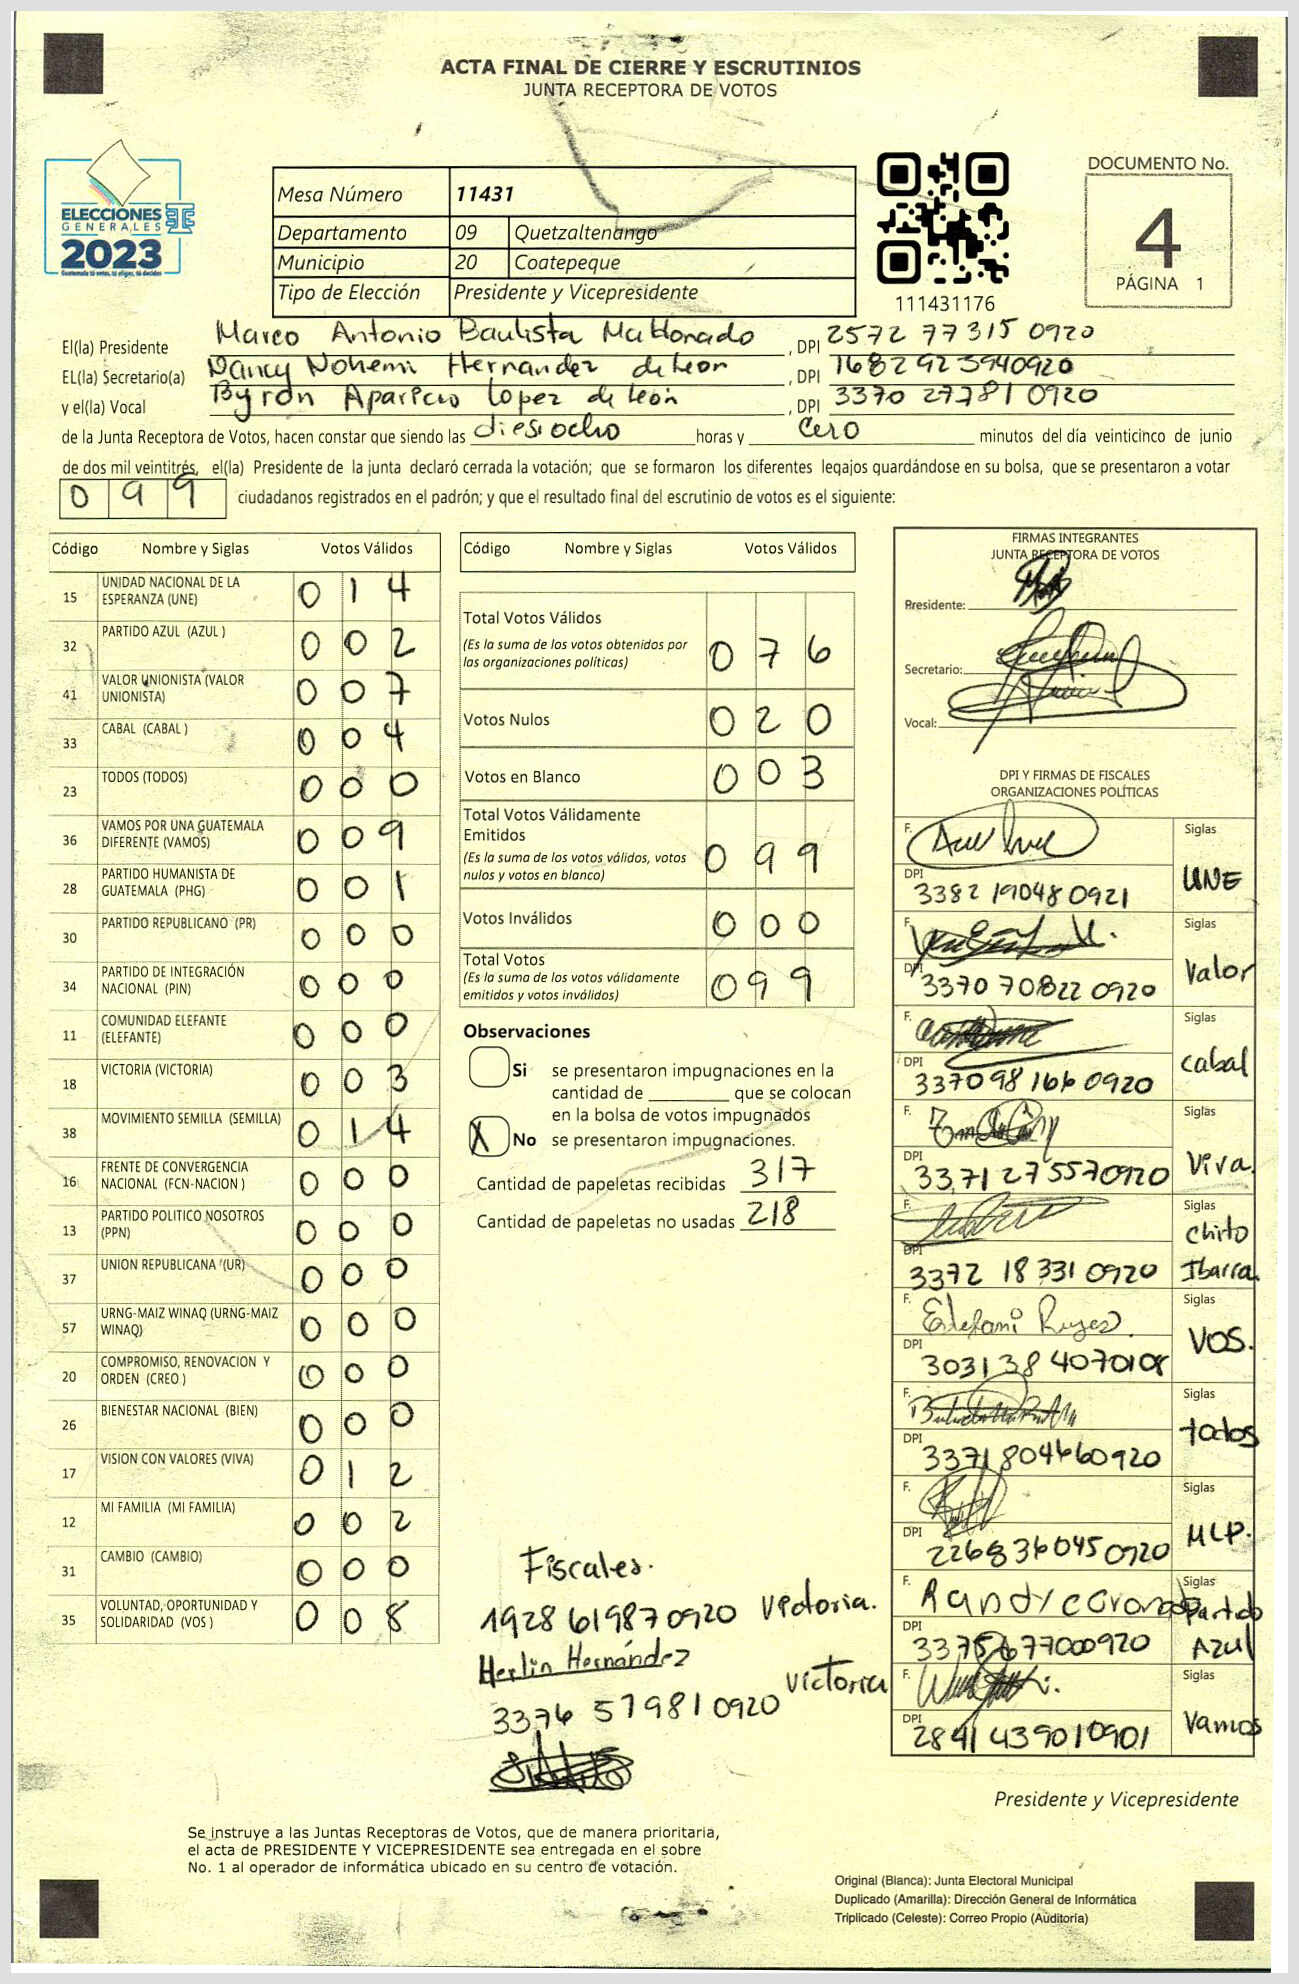 ACTA FINAL DE CIERRE Y ESCRUTINIOS
JUNTA RECEPTORA DE VOTOS
ELECCIONES
GENERALES
2023
Guatemala tú votas, tú eliges, tú decides
Mesa Número 11431
Departamento 09 Quetzaltenango
Municipio 20 Coatepeque
Tipo de Elección Presidente y Vicepresidente
111431176
DOCUMENTO No.
4
PÁGINA 1
El(la) Presidente Marco Antonio Bautista Maldonado, DPI 2572 77315 0920
EL(la) Secretario(a) Nancy Nohemi Hernandez de León, DPI 1682923940920
y el(la) Vocal Byron Aparicio Lopez de León, DPI 3370 27781 0920
de la Junta Receptora de Votos, hacen constar que siendo las diesiocho horas y cero minutos del día veinticinco de junio
de dos mil veintitrés, el(la) Presidente de la junta declaró cerrada la votación; que se formaron los diferentes legajos guardándose en su bolsa, que se presentaron a votar
0 9 9 ciudadanos registrados en el padrón; y que el resultado final del escrutinio de votos es el siguiente:
Código Nombre y Siglas Votos Válidos
15 UNIDAD NACIONAL DE LA ESPERANZA (UNE) 0 1 4
32 PARTIDO AZUL (AZUL ) 0 0 2
41 VALOR UNIONISTA (VALOR UNIONISTA) 0 0 7
33 CABAL (CABAL ) 0 0 4
23 TODOS (TODOS) 0 0 0
36 VAMOS POR UNA GUATEMALA DIFERENTE (VAMOS) 0 0 9
28 PARTIDO HUMANISTA DE GUATEMALA (PHG) 0 0 1
30 PARTIDO REPUBLICANO (PR) 0 0 0
34 PARTIDO DE INTEGRACIÓN NACIONAL (PIN) 0 0 0
11 COMUNIDAD ELEFANTE (ELEFANTE) 0 0 0
18 VICTORIA (VICTORIA) 0 0 3
38 MOVIMIENTO SEMILLA (SEMILLA) 0 1 4
16 FRENTE DE CONVERGENCIA NACIONAL (FCN-NACION ) 0 0 0
13 PARTIDO POLITICO NOSOTROS (PPN) 0 0 0
37 UNION REPUBLICANA (UR) 0 0 0
57 URNG-MAIZ WINAQ (URNG-MAIZ WINAQ) 0 0 0
20 COMPROMISO, RENOVACION Y ORDEN (CREO ) 0 0 0
26 BIENESTAR NACIONAL (BIEN) 0 0 0
17 VISION CON VALORES (VIVA) 0 1 2
12 MI FAMILIA (MI FAMILIA) 0 0 2
31 CAMBIO (CAMBIO) 0 0 0
35 VOLUNTAD, OPORTUNIDAD Y SOLIDARIDAD (VOS ) 0 0 8
Código Nombre y Siglas Votos Válidos
Total Votos Válidos
(Es la suma de los votos obtenidos por
las organizaciones políticas) 0 7 6
Votos Nulos 0 2 0
Votos en Blanco 0 0 3
Total Votos Válidamente
Emitidos
(Es la suma de los votos válidos, votos
nulos y votos en blanco) 0 9 9
Votos Inválidos 0 0 0
Total Votos
(Es la suma de los votos válidamente
emitidos y votos inválidos) 0 9 9
Observaciones
Si se presentaron impugnaciones en la
cantidad de ________ que se colocan
en la bolsa de votos impugnados
X No se presentaron impugnaciones.
Cantidad de papeletas recibidas 317
Cantidad de papeletas no usadas 218
Fiscales.
1928 61987 0920 Victoria.
Herlin Hernández
3376 57981 0920 Victoria
FIRMAS INTEGRANTES
JUNTA RECEPTORA DE VOTOS
Presidente:
Secretario:
Vocal:
DPI Y FIRMAS DE FISCALES
ORGANIZACIONES POLÍTICAS
F. Siglas
DPI 3382 19048 0921 UNE
F. Siglas
DPI 3370 70822 0920 Valor
F. Siglas
DPI 3370 98166 0920 Cabal
F. Siglas
DPI 3371 27557 0920 Viva.
F. Siglas
DPI 3372 18331 0920 Chirto Ibarra.
F. Estefani Reyes. Siglas
DPI 3031 38407 0108 VOS.
F. Siglas
DPI 3371 80466 0920 todos
F. Siglas
DPI 2268 36045 0920 MLP.
F. Randy Coronado Siglas
DPI 3375 67700 0920 Partido Azul
F. Siglas
DPI 2841 43901 0901 Vamos
Presidente y Vicepresidente
Se instruye a las Juntas Receptoras de Votos, que de manera prioritaria,
el acta de PRESIDENTE Y VICEPRESIDENTE sea entregada en el sobre
No. 1 al operador de informática ubicado en su centro de votación.
Original (Blanca): Junta Electoral Municipal
Duplicado (Amarilla): Dirección General de Informática
Triplicado (Celeste): Correo Propio (Auditoría)